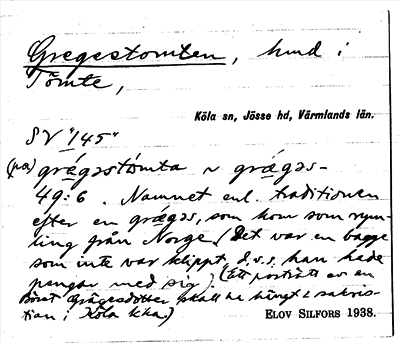 Gregestomten, hund i
Tömte,
Köla sn, Jösse hd, Värmlands län.
SV "/45"
(på) grégəstòmta ~ grǽgəs-
49:6. Namnet enl. traditionen
efter en grægəs, som kom som rym-
ling från Norge. (Det var en bagge
som inte var klippt, d.v.s. han hade
pengar med sig). (Ett porträtt av en
Börst Grägesdotter skall ha hängt i sakris-
tian i Köla kka.)
ELOV SILFORS 1938.